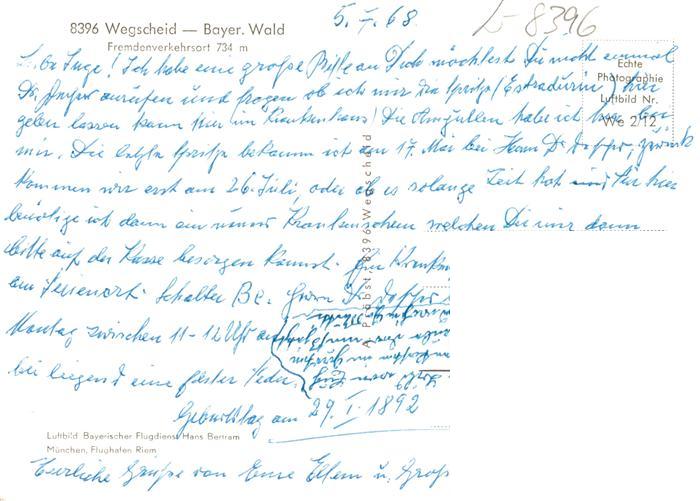 5. 7. 68
L-8396
8396 Wegscheid — Bayer. Wald
Fremdenverkehrsort 734 m
Echte
Photographie
Luftbild Nr.
We 2/12
Inge! Ich habe eine große Bitte an Dich möchtest Du nicht einmal
Dr. anrufen und fragen ob ich mir die Spritze (Estradurin) hier
geben lassen kann hier im Krankenhaus! Die Ampullen habe ich hier bei
mir. Die letzte Spritze bekam ich am 17. Mai bei Herrn Dr. zurück
kommen wir erst am 26. Juli, oder ob es solange Zeit hat Für hier
benötige ich dann ein neuen Krankenschein welchen Du mir dann
bitte auf der Kasse besorgen kannst.
am Ferienort. Schalter Be. Herrn Dr.
Montag zwischen 11-12 Uhr
bei liegend eine
Geburtstag am 29. I. 1892
A. Probst, 8396 Wegscheid
Luftbild Bayerischer Flugdienst Hans Bertram
München, Flughafen Riem
Herzliche Grüße von Eure Eltern u. Groß